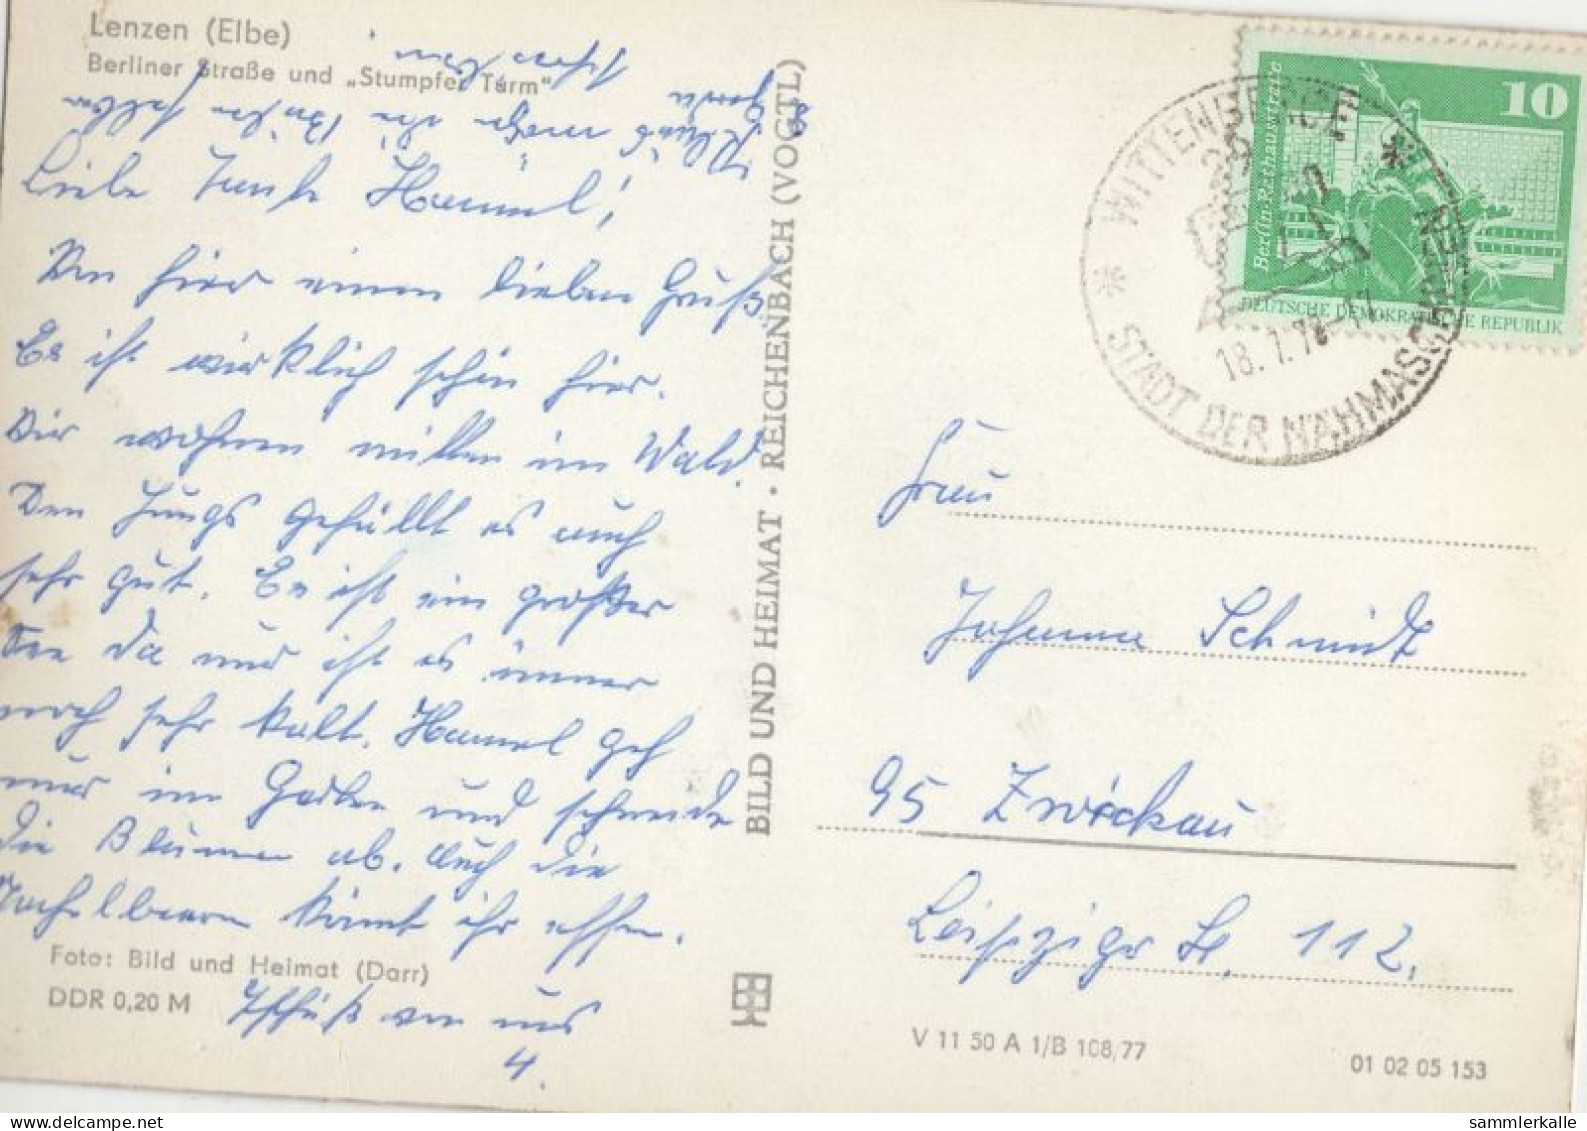 Lenzen (Elbe)
Berliner Straße und „Stumpfer Turm"
Liebe Tante Hammel!
Von hier einen lieben Gruß.
Es ist wirklich schön hier.
Wir wohnen mitten im Wald.
Den Jungs gefällt es auch
sehr gut. Es ist ein großer
See da nur ist es immer
noch sehr kalt. Hammel geh
nur im Garten und schneide
die Blumen ab. Auch die
Stachelbeeren könnt ihr essen.
Tschüß von uns
4.
Foto: Bild und Heimat (Darr)
DDR 0,20 M
BILD UND HEIMAT · REICHENBACH (VOGTL)
10
Berlin-Rathausstraße
DEUTSCHE DEMOKRATISCHE REPUBLIK
* WITTENBERGE *
STADT DER NÄHMASCHINEN
18.7.78-17
Frau
Johanna Schmidt
95 Zwickau
Leipziger St. 112.
V 11 50 A 1/B 108/77
01 02 05 153
sammlerkalle